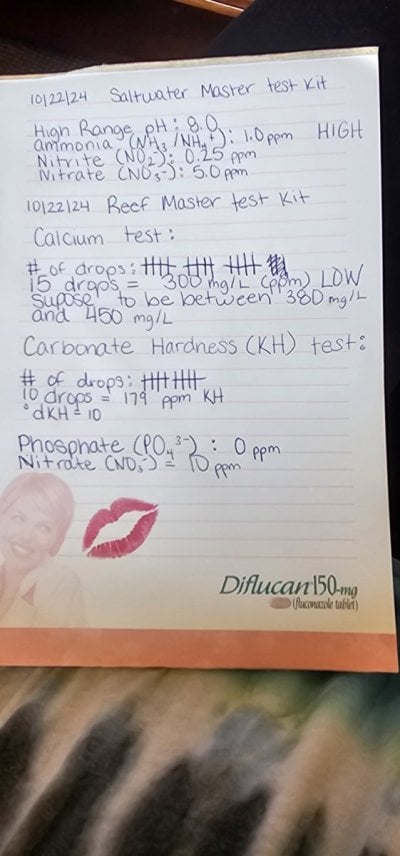 10/22/24 Saltwater Master test Kit
High Range pH: 8.0
ammonia (NH3/NH4+): 1.0 ppm HIGH
Nitrite (NO2-): 0.25 ppm
Nitrate (NO3-): 5.0 ppm
10/22/24 Reef Master test Kit
Calcium test:
# of drops: 卌 卌 卌
15 drops = 300 mg/L (ppm) LOW
Supose to be between 380 mg/L
and 450 mg/L
Carbonate Hardness (KH) test:
# of drops: 卌 卌
10 drops = 179 ppm KH
°dKH = 10
Phosphate (PO4 3-): 0 ppm
Nitrate (NO3-) = 10 ppm
Diflucan 150-mg
(fluconazole tablet)